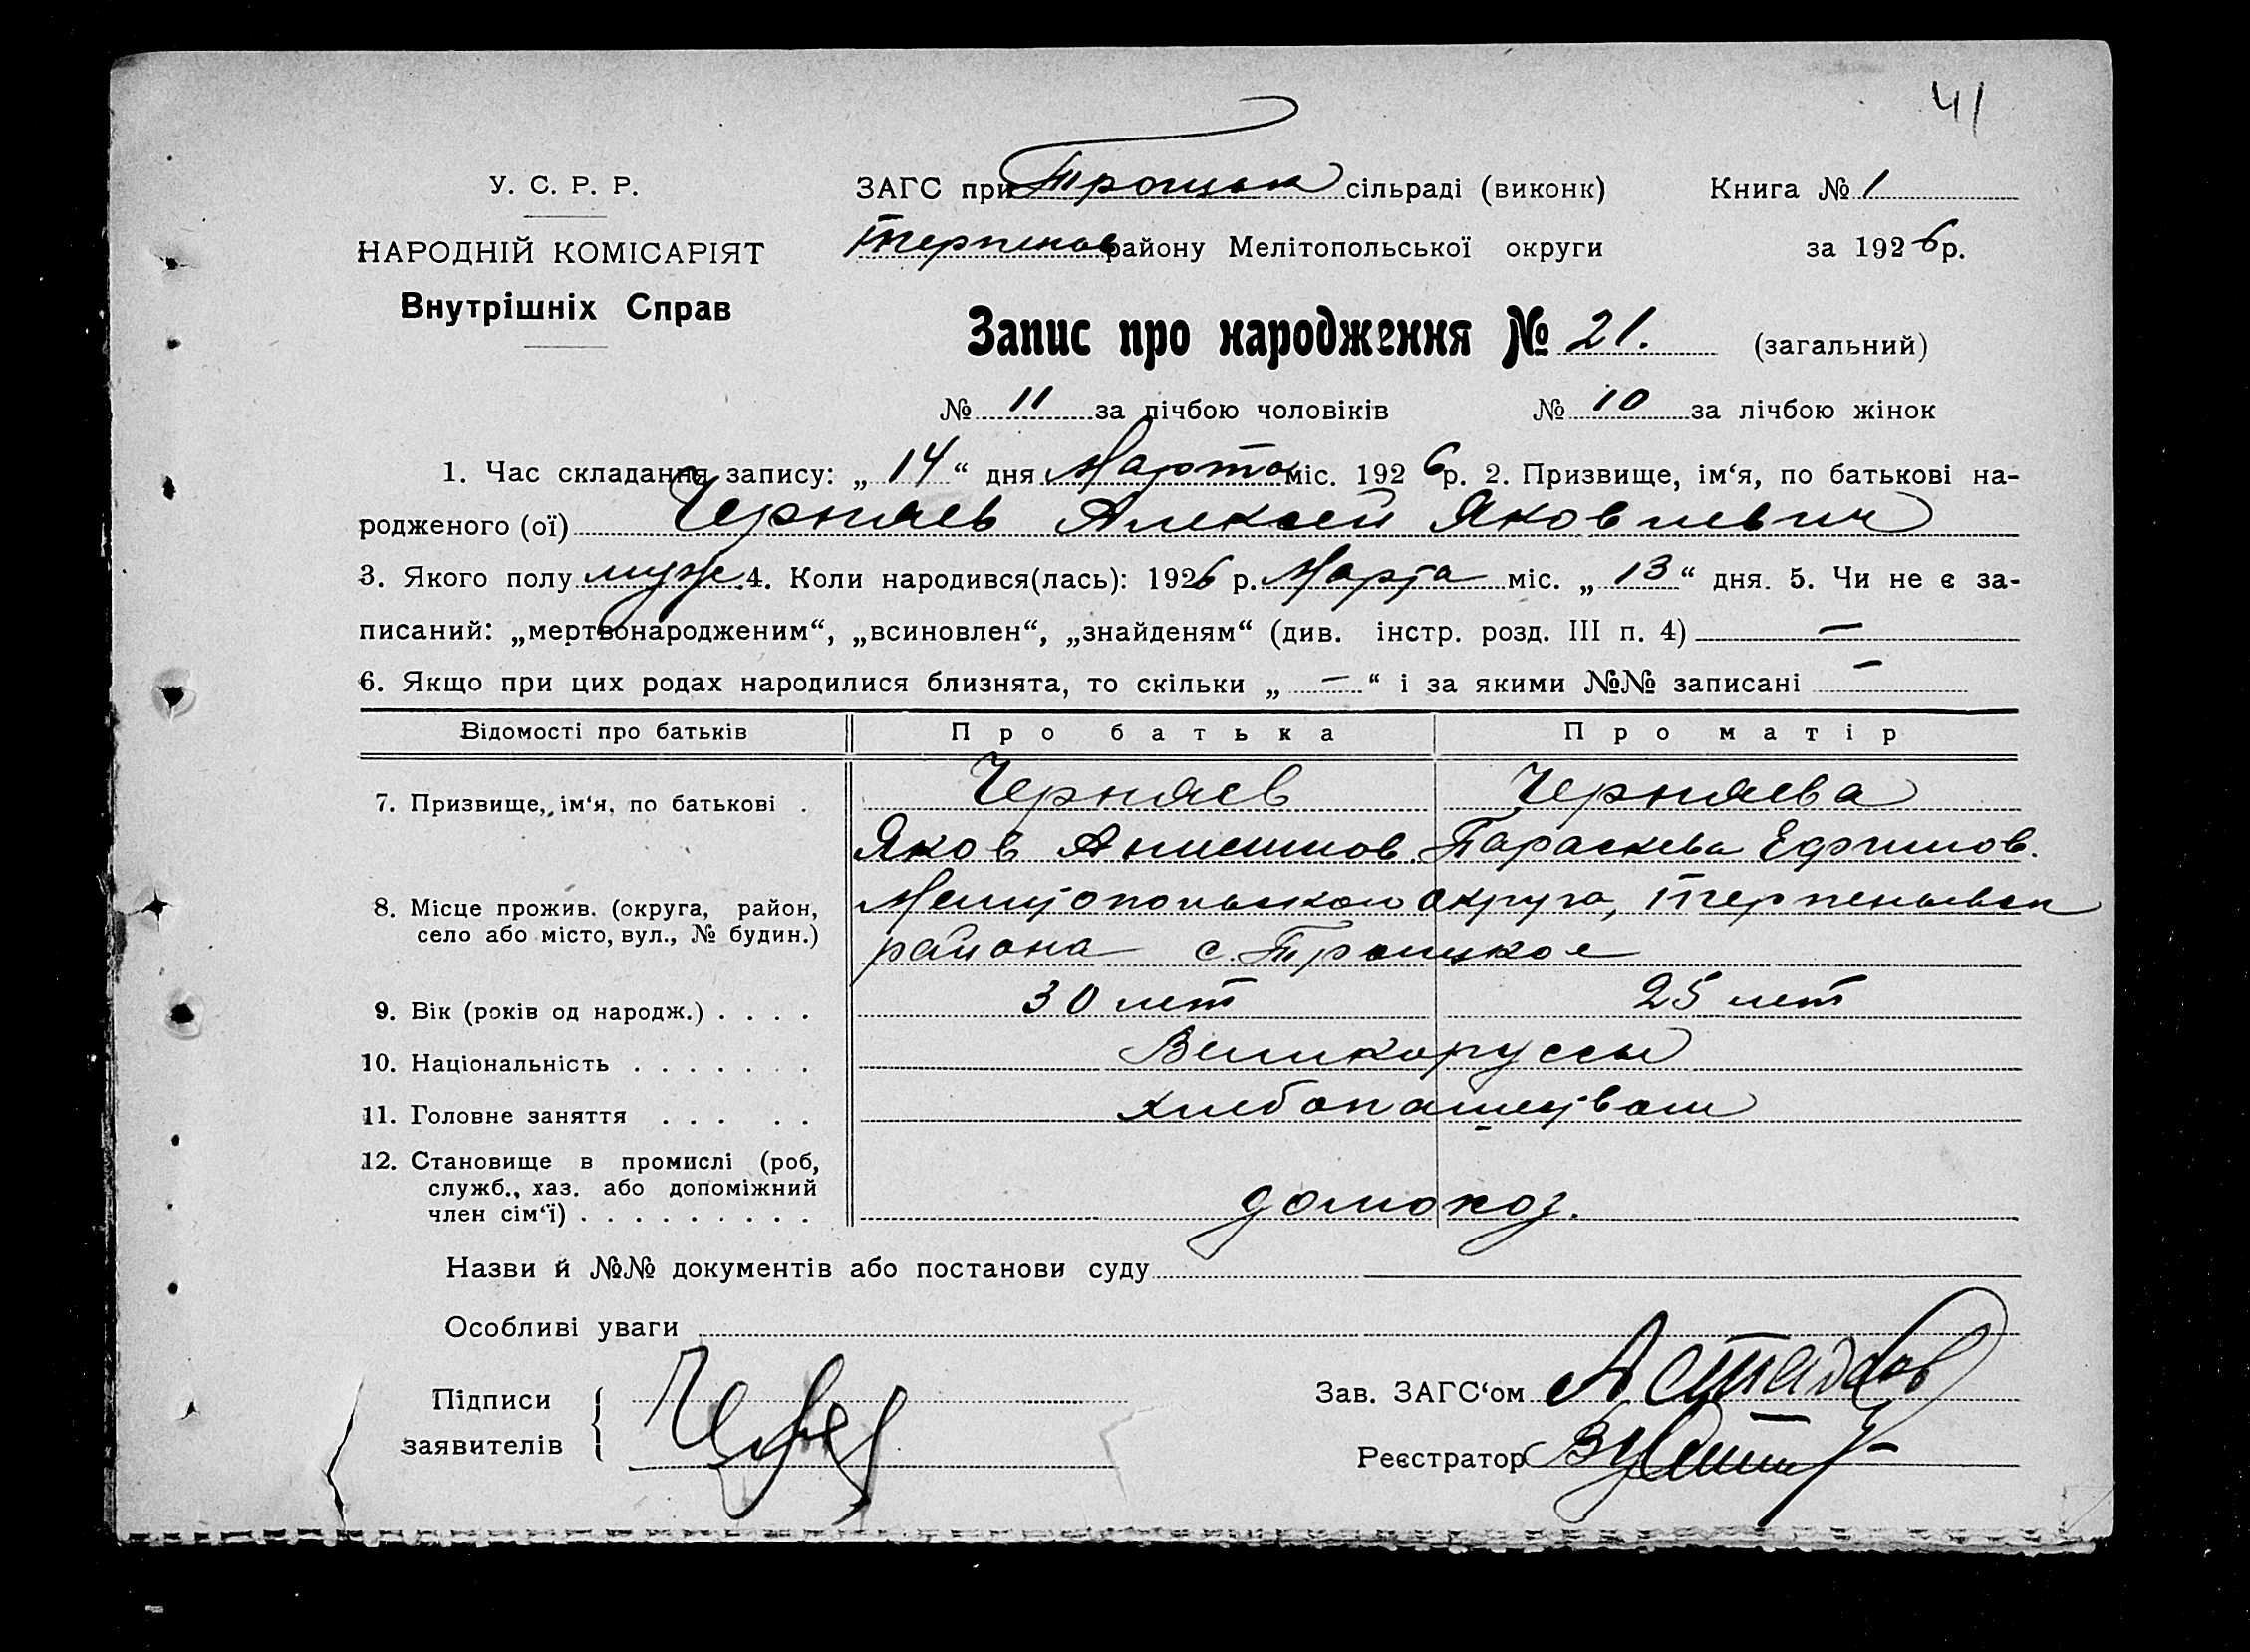 41
У. С. Р. Р.
ЗАГС при Троицьк сільраді (виконк)
Книга № 1
НАРОДНІЙ КОМІСАРІЯТ
Терпенов району Мелітопольської округи
за 1926 р.
Внутрішніх Справ
Запис про народження № 21. (загальний)
№ 11 за лічбою чоловіків № 10 за лічбою жінок
1. Час складання запису: „ 14 “ дня Марта міс. 1926 р. 2. Призвище, ім‘я, по батькові на-
родженого (ої) Черняев Алексей Яковлевич
3. Якого полу муж. 4. Коли народився(лась): 1926 р. Марта міс. „ 13 “ дня. 5. Чи не є за-
писаний: „мертвонародженим“, „всиновлен“, „знайденям“ (див. інстр. розд. III п. 4) —
6. Якщо при цих родах народилися близнята, то скільки „ — “ і за якими №№ записані —
Відомості про батьків Про батька Про матір
7. Призвище, ім‘я, по батькові . Черняев Черняева
Яков Анисимов. Параскева Ефимов.
8. Місце прожив. (округа, район, Мелитопольской округа, Терпеньевск
село або місто, вул., № будин.) района с. Троицкое
9. Вік (років од народж.) . . . . 30 лет 25 лет
10. Національність . . . . . . . Великоруссы
11. Головне заняття . . . . . хлебопашеством
12. Становище в промислі (роб,
служб., хаз. або допоміжний
член сім‘ї) . . . . . . . . . домохоз.
Назви й №№ документів або постанови суду
Особливі уваги
Підписи
заявителів
Зав. ЗАГС‘ом
Реєстратор